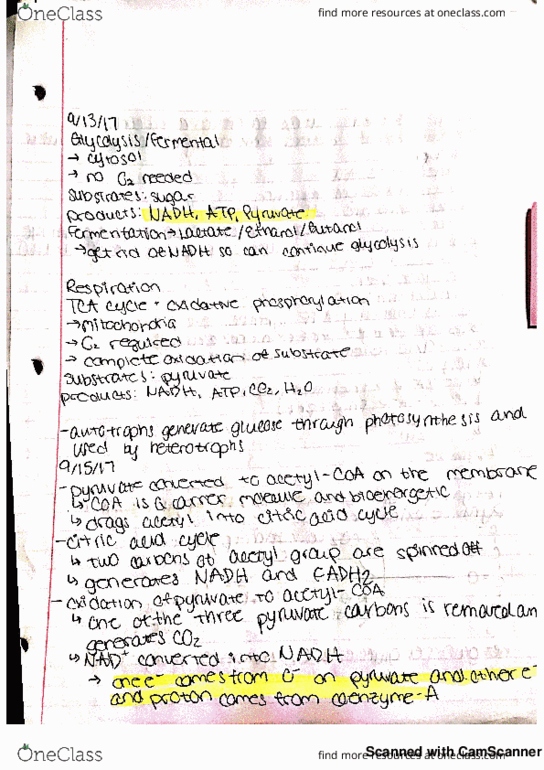 OneClass
find more resources at oneclass.com
9/13/17
Glycolysis/Fermental
→ cytosol
→ no O2 needed
substrates: sugar
products: NADH, ATP, Pyruvate
Fermentation → Lactate/Ethanol/Butanol
→ get rid of NADH so can continue glycolysis
Respiration
TCA cycle + oxidative phosphorylation
→ mitochondria
→ O2 required
→ complete oxidation of substrate
substrates: pyruvate
products: NADH, ATP, CO2, H2O
- autotrophs generate glucose through photosynthesis and
used by heterotrophs
9/15/17
- pyruvate converted to acetyl-COA on the membrane
↳ COA is a carrier molecule and bioenergetic
↳ drags acetyl into citric acid cycle
- citric acid cycle
↳ two carbons of acetyl group are spinned off
↳ generates NADH and FADH2
- oxidation of pyruvate to acetyl-COA
↳ one of the three pyruvate carbons is removed an
generates CO2
↳ NAD+ converted into NADH
→ one e- comes from C- on pyruvate and other e-
and proton comes from coenzyme-A
OneClass
find more resources at oneclass.com
Scanned with CamScanner